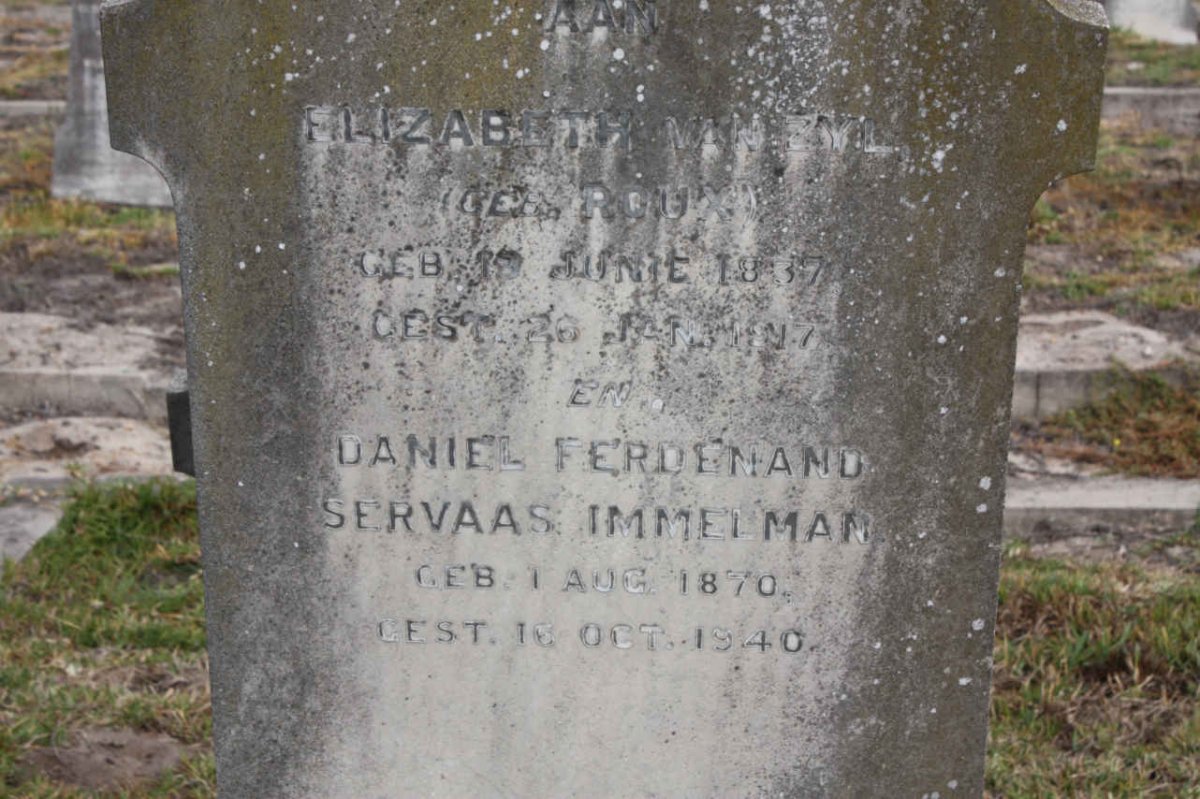 AAN
ELIZABETH VAN ZYL,
(GEB. ROUX)
GEB. 19 JUNIE 1837
GEST. 26 JAN. 1917.
EN
DANIEL FERDENAND
SERVAAS IMMELMAN.
GEB. 1 AUG. 1870,
GEST. 16 OCT. 1940.